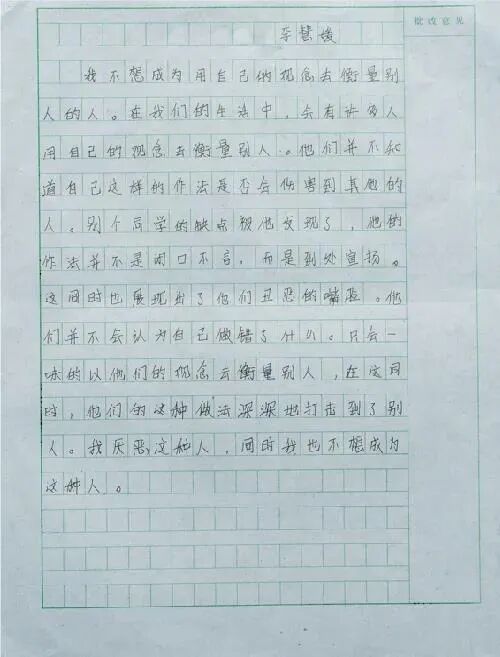 批改意见
李慧媛
我不想成为用自己的观念去衡量别
人的人。在我们的生活中，会有许多人
用自己的观念去衡量别人。他们并不知
道自己这样的作法是否会伤害到其他的
人。别个同学的缺点被他发现了，他的
作法并不是闭口不言，而是到处宣扬。
这同时也展现出了他们丑恶的嘴脸。他
们并不会认为自己做错了什么。只会一
味的以他们的观念去衡量别人，在这同
时，他们的这种做法深深地打击到了别
人。我厌恶这种人，同时我也不想成为
这种人。